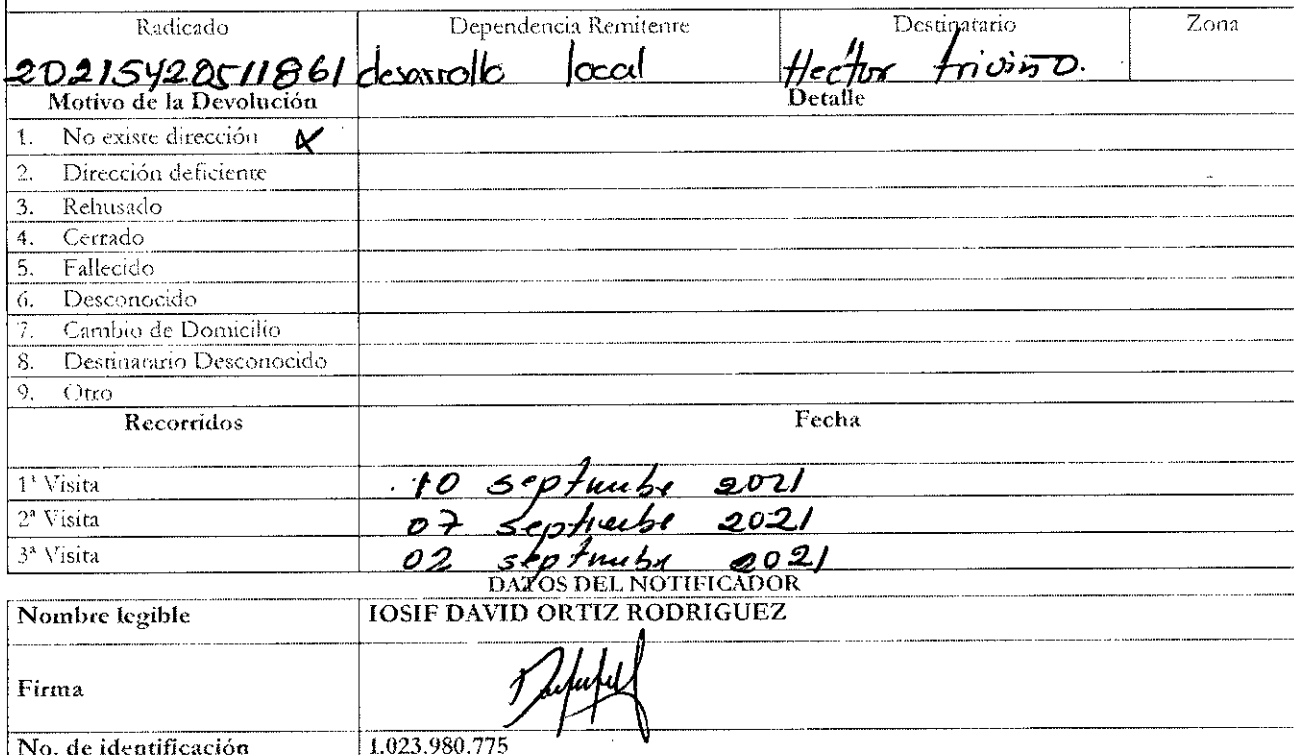 Radicado Dependencia Remitente Destinatario Zona
20215420511861 desarrollo local Hector triviño.
Motivo de la Devolución Detalle
1. No existe dirección X
2. Dirección deficiente
3. Rehusado
4. Cerrado
5. Fallecido
6. Desconocido
7. Cambio de Domicilio
8. Destinatario Desconocido
9. Otro
Recorridos Fecha
1ª Visita 10 septiembre 2021
2ª Visita 07 septiembre 2021
3ª Visita 02 septiembre 2021
DATOS DEL NOTIFICADOR
Nombre legible IOSIF DAVID ORTIZ RODRIGUEZ
Firma
No. de identificación 1.023.980.775